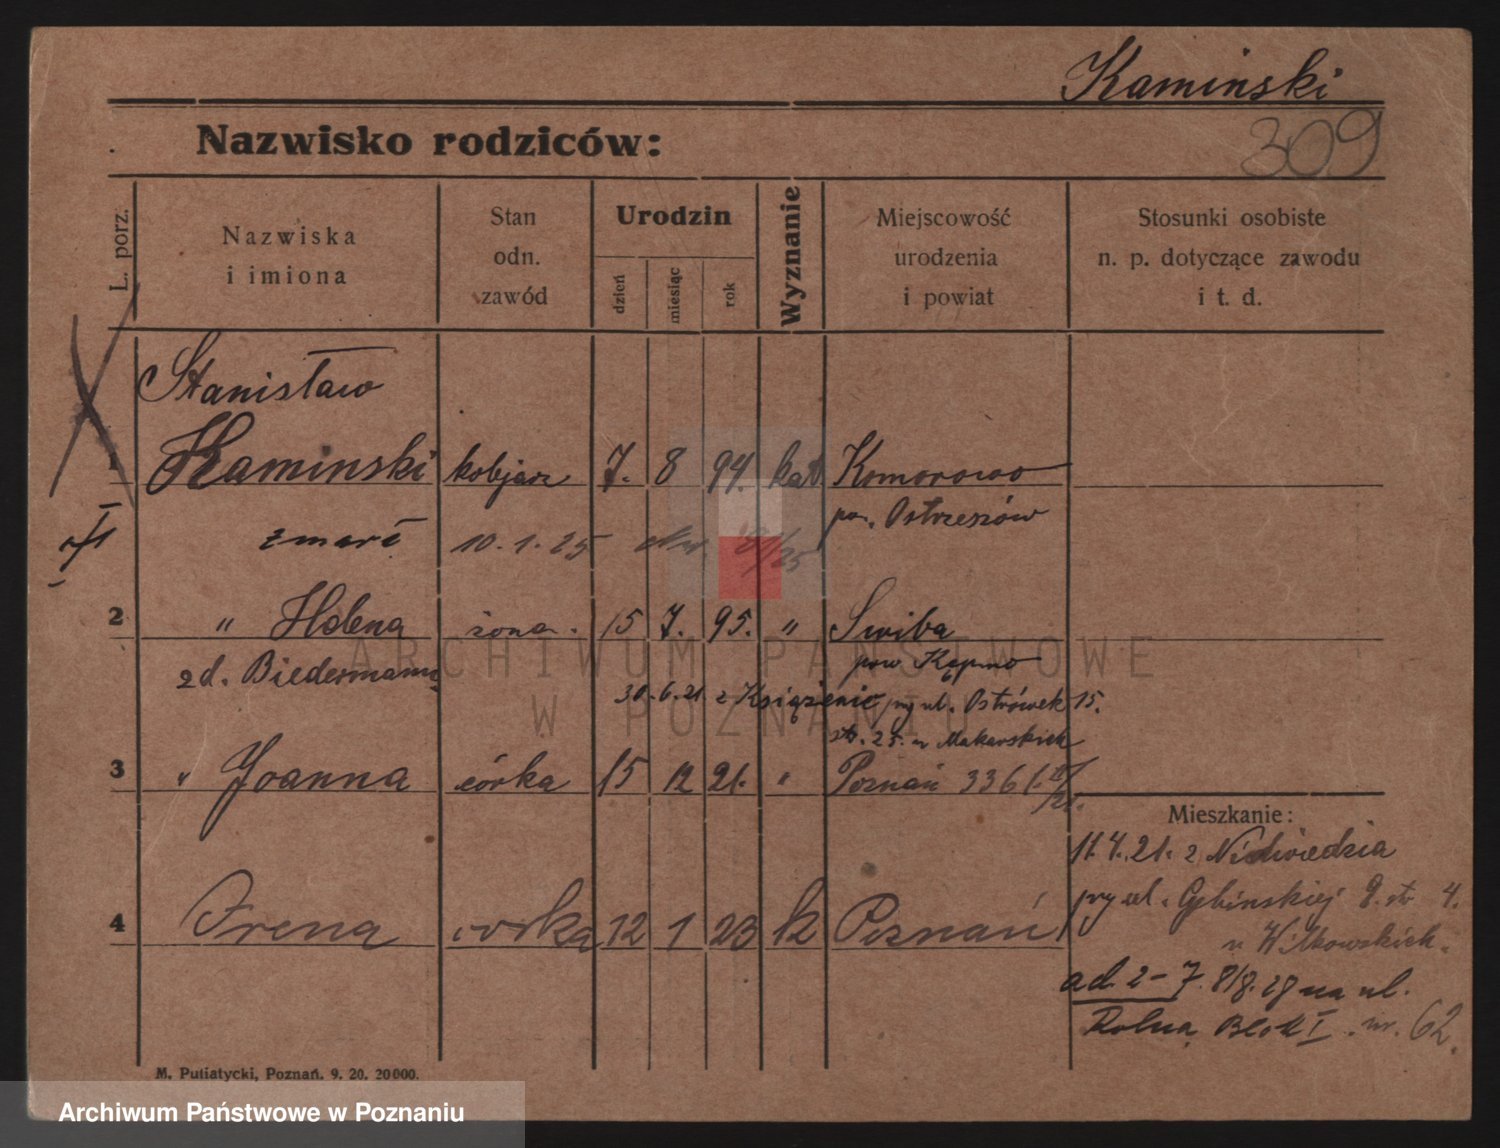 Kaminski
309
Nazwisko rodziców:
L. porz.
Nazwiska
i imiona
Stan
odn.
zawód
Urodzin
dzień
miesiąc
rok
Wyznanie
Miejscowość
urodzenia
i powiat
Stosunki osobiste
n. p. dotyczące zawodu
i t. d.
Stanisław
1 Kaminski kolejarz 7. 8 94. kat. Komorowo
pow. Ostrzeszów
zmarł 10.1.25
2 " Helena żona. 15 7. 95. " Swiba
zd. Biedermann
pow Kępno
30.6.21 z Książenic przy ul. Ostrówek 15.
u Makarskich
3 " Joanna córka 15 12 21. " Poznań 3361.
Mieszkanie:
11.4.21. z Niedwiedzia
przy ul. 4.
u Witkowskich.
4 Irena córka 12 1 23 k Poznań
ad. 2-7. 8/8.28 na ul.
Rolną Blok I. nr. 62.
M. Putiatycki, Poznań. 9. 20. 20000.
ARCHIWUM PAŃSTWOWE
W POZNANIU
Archiwum Państwowe w Poznaniu